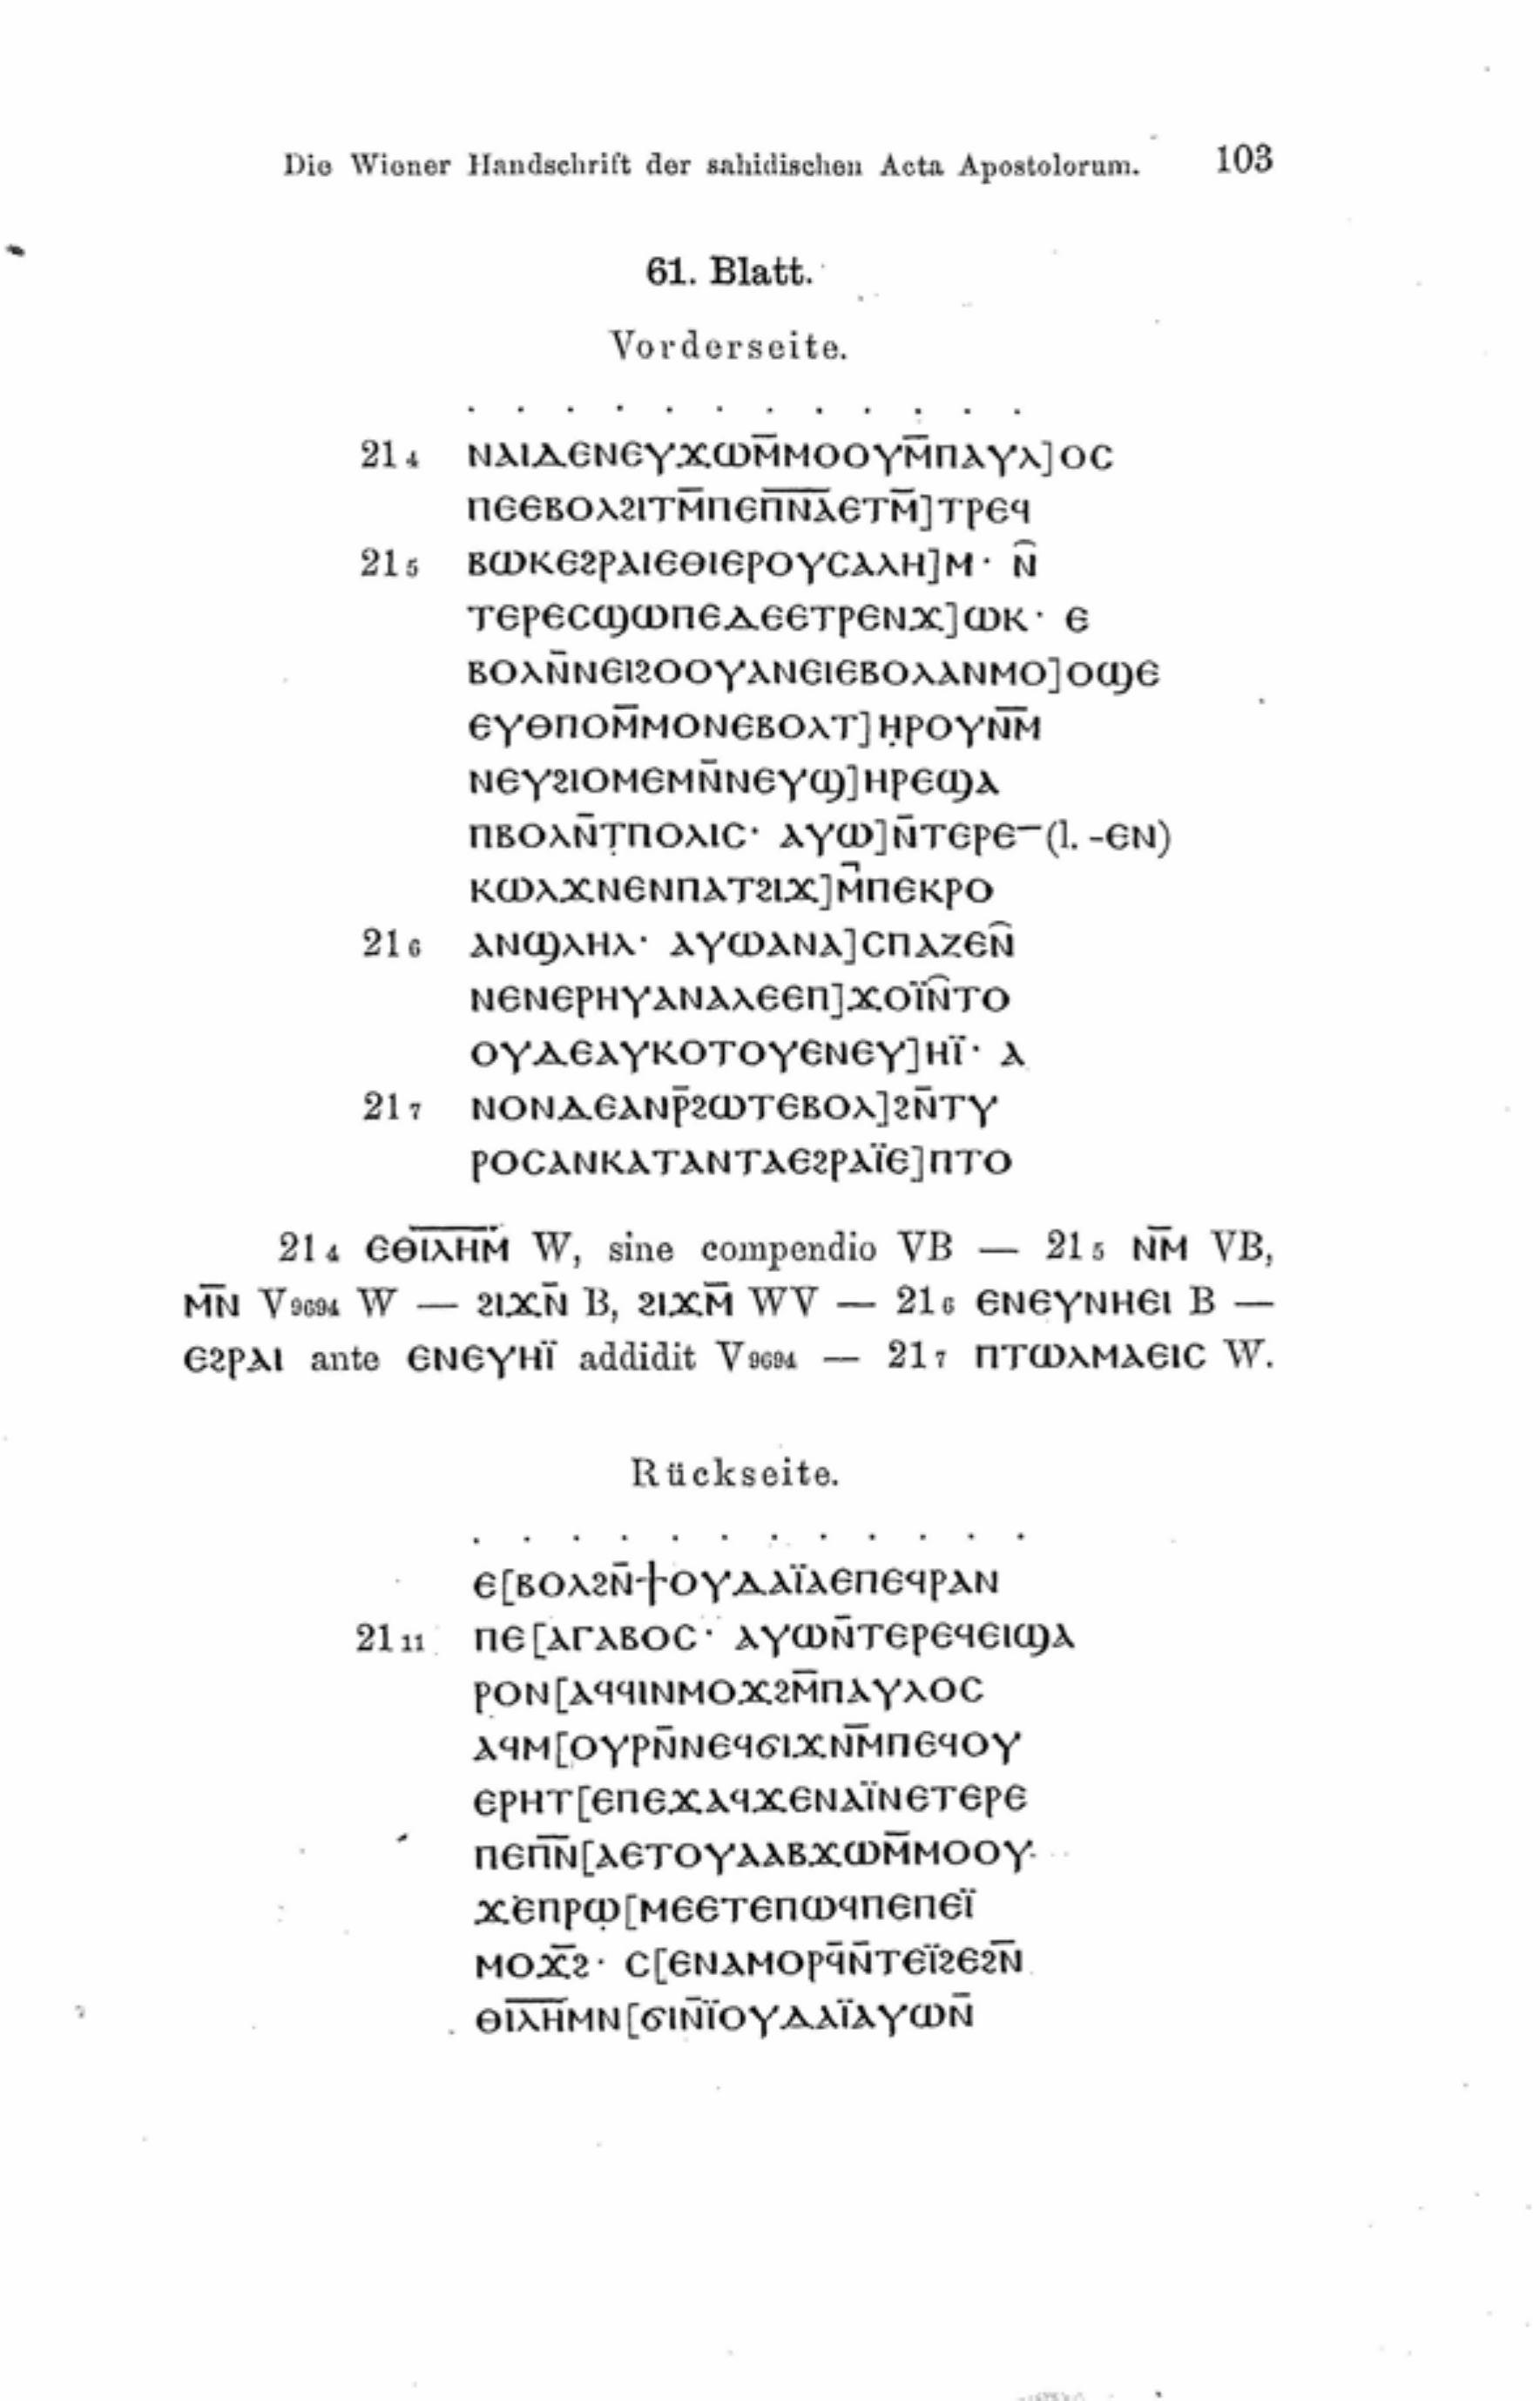 Die Wiener Handschrift der sahidischen Acta Apostolorum. 103
61. Blatt.
Vorderseite.
. . . . . . . . . . . .
21 4 ⲛⲁⲓⲇⲉⲛⲉⲩϫⲱⲙ̅ⲙⲟⲟⲩⲙ̅ⲡⲁⲩⲗ]ⲟⲥ
ⲡⲉⲉⲃⲟⲗϩⲓⲧⲙ̅ⲡⲉⲡ̅ⲛ̅ⲁ̅ⲉⲧⲙ̅]ⲧⲣⲉϥ
21 5 ⲃⲱⲕⲉϩⲣⲁⲓⲉⲑⲓⲉⲣⲟⲩⲥⲁⲗⲏ]ⲙ· ⲛ̑
ⲧⲉⲣⲉⲥϣⲱⲡⲉⲇⲉⲉⲧⲣⲉⲛϫ]ⲱⲕ· ⲉ
ⲃⲟⲗⲛ̅ⲛⲉⲓϩⲟⲟⲩⲁⲛⲉⲓⲉⲃⲟⲗⲁⲛⲙⲟ]ⲟϣⲉ
ⲉⲩⲑⲡⲟⲙ̅ⲙⲟⲛⲉⲃⲟⲗⲧ]ⲏ̣ⲣⲟⲩⲛ̅ⲙ̅
ⲛⲉⲩϩⲓⲟⲙⲉⲙⲛ̅ⲛⲉⲩϣ]ⲏⲣⲉϣⲁ
ⲡⲃⲟⲗⲛ̅ⲧ̣ⲡⲟⲗⲓⲥ· ⲁⲩⲱ]ⲛ̅ⲧⲉⲣⲉ‾(l. -ⲉⲛ)
ⲕⲱⲗϫⲛⲉⲛⲡⲁⲧϩⲓϫ]ⲙ̅ⲡⲉⲕⲣⲟ
21 6 ⲁⲛϣⲗⲏⲗ· ⲁⲩⲱⲁⲛⲁ]ⲥⲡⲁⲍⲉⲛ̑
ⲛⲉⲛⲉⲣⲏⲩⲁⲛⲁⲗⲉⲉⲡ]ϫⲟⲓ̈ⲛ̑ⲧⲟ
ⲟⲩⲇⲉⲁⲩⲕⲟⲧⲟⲩⲉⲛⲉⲩ]ⲏⲓ̈· ⲁ
21 7 ⲛⲟⲛⲇⲉⲁⲛⲣ̅ϩⲱⲧⲉⲃⲟⲗ]ϩⲛ̅ⲧⲩ
ⲣⲟⲥⲁⲛⲕⲁⲧⲁⲛⲧⲁⲉϩⲣⲁⲓ̈ⲉ]ⲡⲧⲟ
21 4 ⲉⲑⲓ̅ⲗ̅ⲏ̅ⲙ̅ W, sine compendio VB — 21 5 ⲛ̅ⲙ̅ VB,
ⲙ̅ⲛ̅ V9694 W — ϩⲓϫⲛ̅ B, ϩⲓϫⲙ̅ WV — 21 6 ⲉⲛⲉⲩⲛⲏⲉⲓ B —
ⲉϩⲣⲁⲓ ante ⲉⲛⲉⲩⲏⲓ̈ addidit V9694 — 21 7 ⲡⲧⲱⲗⲙⲁⲉⲓⲥ W.
Rückseite.
. . . . . . . . . . . .
ⲉ[ⲃⲟⲗϩⲛ̅ϯⲟⲩⲇⲁⲓ̈ⲁⲉⲡⲉϥⲣⲁⲛ
21 11 ⲡⲉ[ⲁⲅⲁⲃⲟⲥ· ⲁⲩⲱⲛ̅ⲧⲉⲣⲉϥⲉⲓϣⲁ
ⲣⲟⲛ[ⲁϥϥⲓⲛⲙⲟϫϩⲙ̅ⲡⲁⲩⲗⲟⲥ
ⲁϥⲙ[ⲟⲩⲣⲛ̅ⲛⲉϥϭⲓϫⲛ̅ⲙ̅ⲡⲉϥⲟⲩ
ⲉⲣⲏⲧ[ⲉⲡⲉϫⲁϥϫⲉⲛⲁⲓ̈ⲛⲉⲧⲉⲣⲉ
ⲡⲉⲡ̅ⲛ̅[ⲁⲉⲧⲟⲩⲁⲁⲃϫⲱⲙ̅ⲙⲟⲟⲩ·
ϫⲉⲡⲣⲱ̣[ⲙⲉⲉⲧⲉⲡⲱϥⲡⲉⲡⲉⲓ̈
ⲙⲟϫ̅ϩ· ⲥ[ⲉⲛⲁⲙⲟⲣϥ̅ⲛ̅ⲧⲉⲓ̈ϩⲉϩⲛ̅
ⲑⲓ̅ⲗ̅ⲏ̅ⲙⲛ[ϭⲓⲛ̅ⲓ̈ⲟⲩⲇⲁⲓ̈ⲁⲩⲱⲛ̅